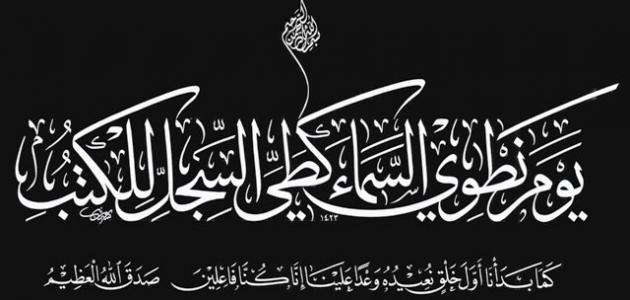 بسم الله الرحمن الرحيم
يَوْمَ نَطْوِي السَّمَاءَ كَطَيِّ السِّجِلِّ لِلْكُتُبِ
١٤٢٣
كَمَا بَدَأْنَا أَوَّلَ خَلْقٍ نُعِيدُهُ وَعْدًا عَلَيْنَا إِنَّا كُنَّا فَاعِلِينَ صَدَقَ اللهُ الْعَظِيمُ